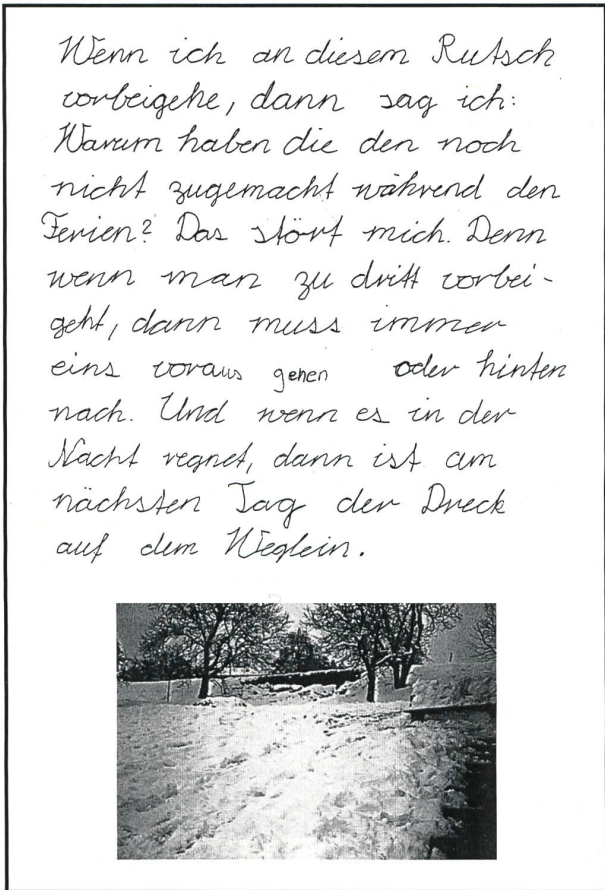 Wenn ich an diesem Rutsch
vorbeigehe, dann sag ich:
Warum haben die den noch
nicht zugemacht während den
Ferien? Das stört mich. Denn
wenn man zu dritt vorbei-
geht, dann muss immer
eins voraus gehen oder hinten
nach. Und wenn es in der
Nacht regnet, dann ist am
nächsten Tag der Dreck
auf dem Weglein.